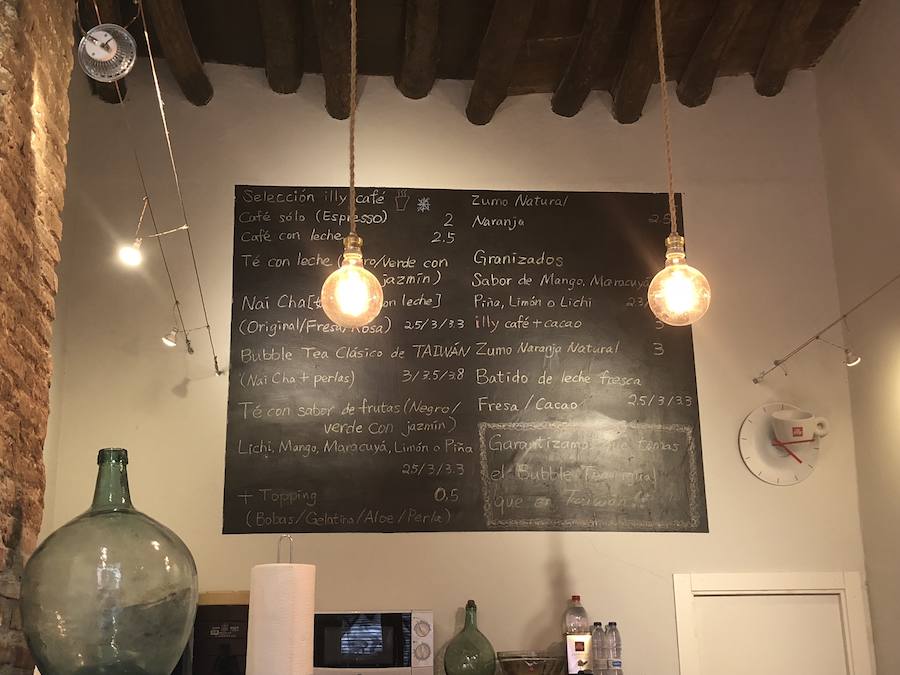 Selección illy café
Café sólo (Espresso) 2
Café con leche 2,5
Té con leche (Negro/Verde con
jazmín)
Nai Cha [ con leche]
(Original/Fresa/Rosa) 2.5/3/3.3
Bubble Tea Clásico de TAIWÁN
(Nai Cha + perlas) 3/3.5/3.8
Té con sabor de frutas (Negro/
verde con jazmín)
Lichi, Mango, Maracuyá, Limón o Piña
2.5/3/3.3
+ Topping 0,5
(Bobas/Gelatina/Aloe/Perla)
Zumo Natural
Naranja 2.5
Granizados
Sabor de Mango, Maracuyá
Piña, Limón o Lichi
illy café + cacao 3
Zumo Naranja Natural 3
Batido de leche fresca
Fresa / Cacao 2.5/3/3.3
Garantizamos que tomas
el Bubble Tea igual
que en Taiwán!!
illy